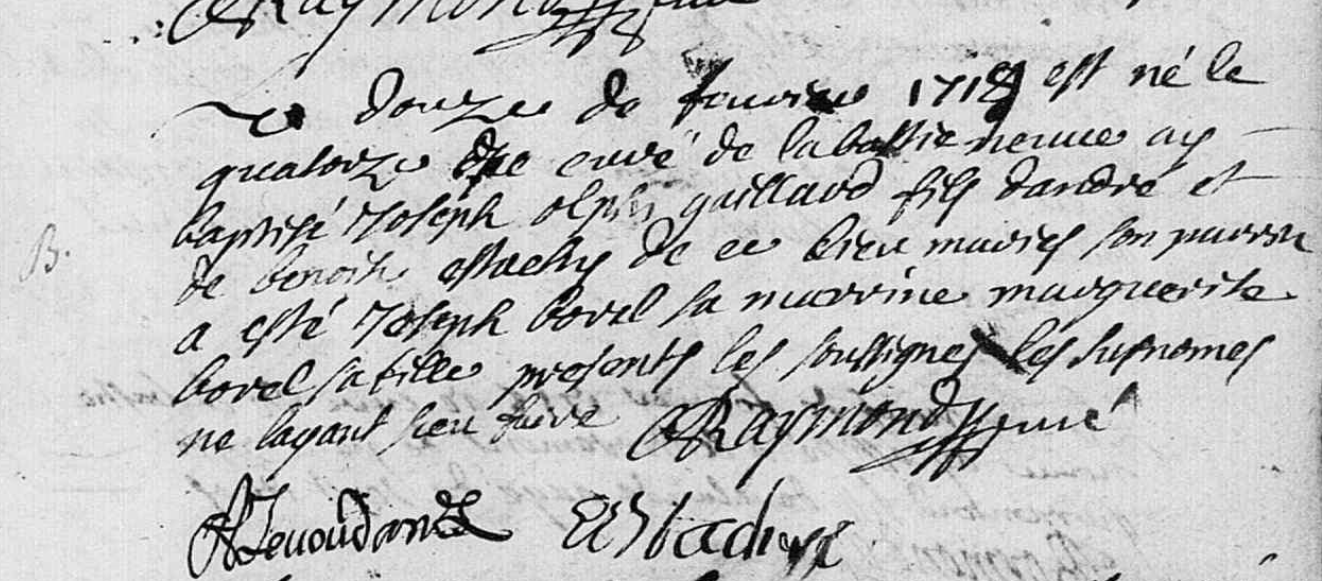 Raymond
Le douze de fevrier 1718 est né le
quatorze curé de labastie neuve ay
baptisé Joseph olphi gaillard fils dandré et
B. de benoite estachy de ce lieu mariés son parrin
a esté Joseph borel sa marrine marguerite
borel sa fille presents les soussignes les susnomes
ne layant sceu faire Raymond curé
Estachy